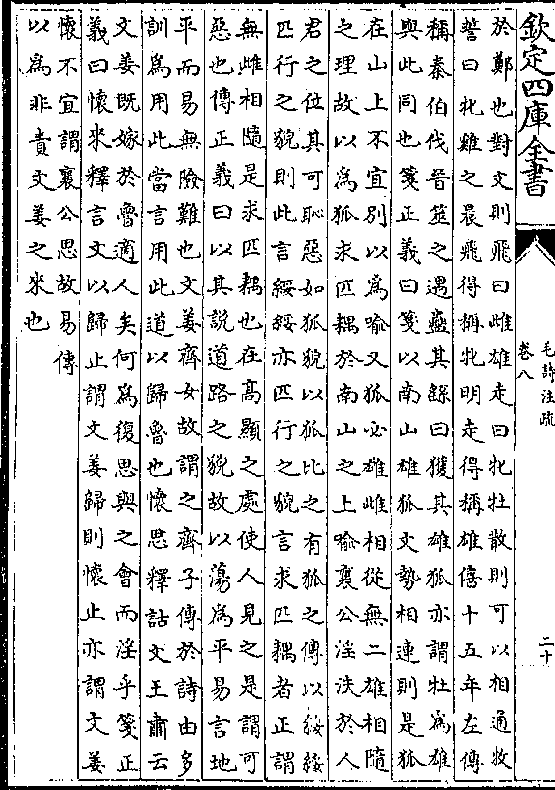 欽定四庫全書
毛詩注疏
卷八
二十
於鄭也對文則飛曰雌雄走曰牝牡散則可以相通牧
誓曰牝雞之晨飛得稱牝明走得稱雄僖十五年左傳
稱秦伯伐晉筮之遇蠱其繇曰獲其雄狐亦謂牡為雄
與此同也箋正義曰箋以南山雄狐文勢相連則是狐
在山上不宜別以為喻又狐必雄雌相從無二雄相隨
之理故以為狐求匹耦於南山之上喻襄公淫泆於人
君之位其可恥惡如狐貌以狐比之有狐之傳以綏綏
匹行之貌則此言綏綏亦匹行之貌言求匹耦者正謂
無雌相隨是求匹耦也在高顯之處使人見之是謂可
惡也傳正義曰以其說道路之貌故以蕩為平易言地
平而易無險難也文姜齊女故謂之齊子傳於詩由多
訓為用此當言用此道以歸魯也懷思釋詁文王肅云
文姜既嫁於魯適人矣何為復思與之會而淫乎箋正
義曰懷來釋言文以歸止謂文姜歸則懷止亦謂文姜
懷不宜謂襄公思故易傳
以為非責文姜之來也